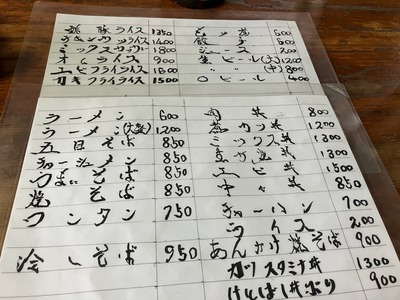 ライス 1350
チキンカツライス 1400
ミックスカツカレー 1800
オムライス 900
エビフライライス 1600
カキフライライス 1500
餃子 600
ジュース 200
生ビール(大) 1200
〃(中) 800
ビール 400
ラーメン 600
ラーメン(大盛) 1200
五目そば 850
チャーシューメン 850
うまにそば 850
焼そば 850
ワンタン 750
冷しそば 950
肉丼 800
カツ丼 1200
ミックス丼 1300
1300
エビ丼 1500
中丼 850
チャーハン 700
ライス 200
あんかけ焼そば 900
カツスタミナ丼 1300
900